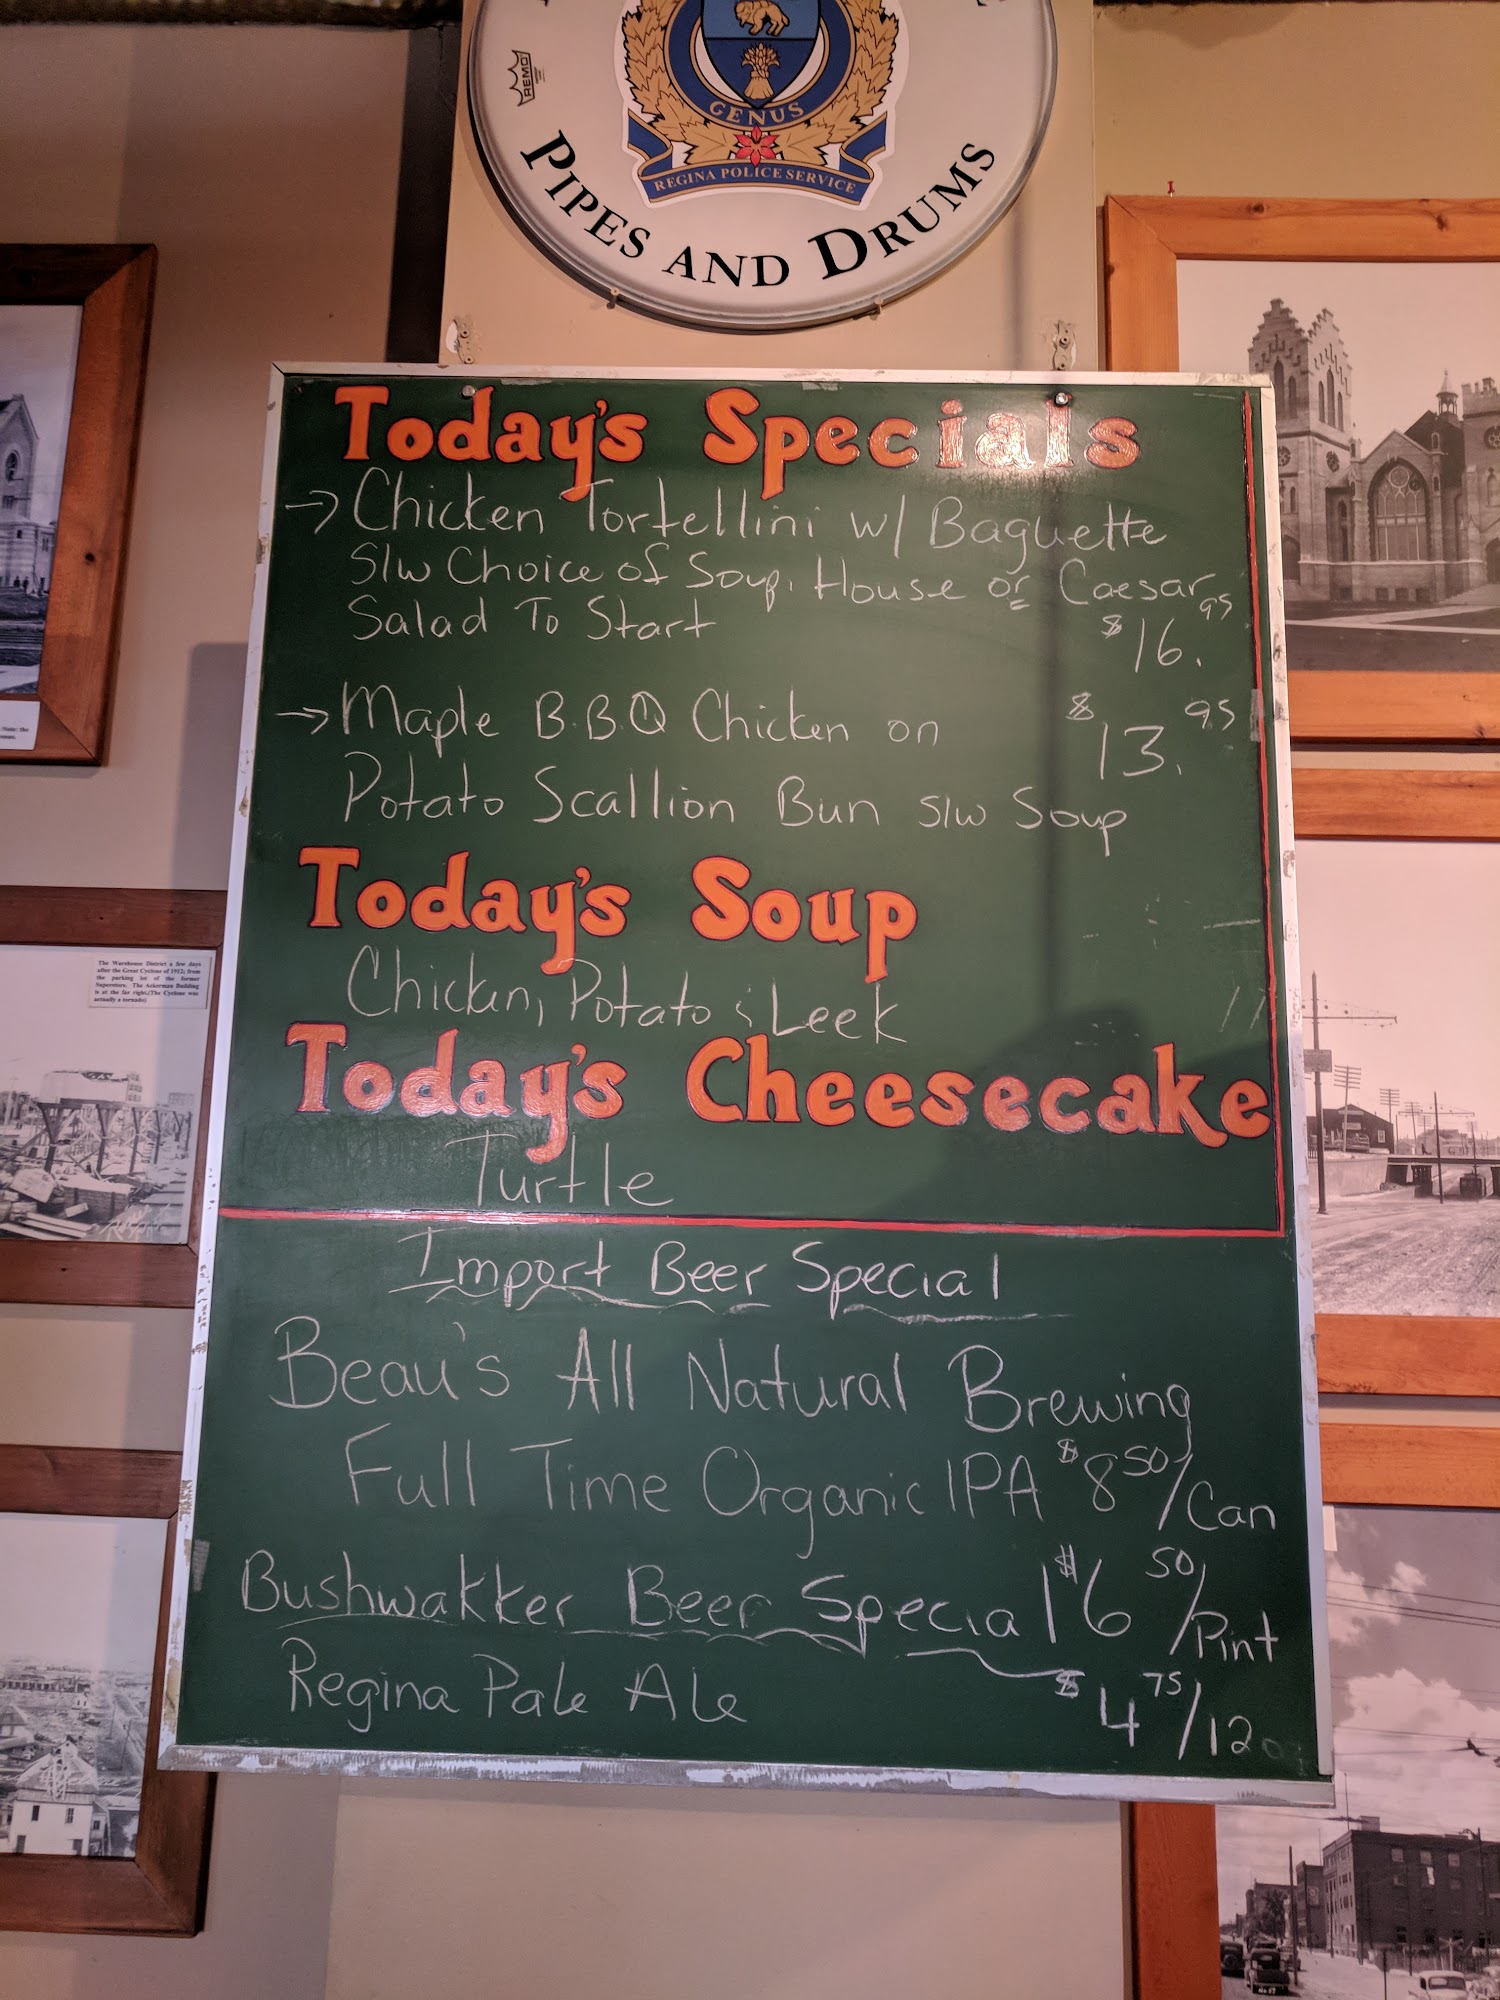 REMO
GENUS
REGINA POLICE SERVICE
PIPES AND DRUMS
Today's Specials
→ Chicken Tortellini w/ Baguette
S/w Choice of Soup, House or Caesar
Salad To Start $16.95
→ Maple B.B.Q Chicken on $13.95
Potato Scallion Bun s/w Soup
Today's Soup
Chicken, Potato & Leek
Today's Cheesecake
Turtle
Import Beer Special
Beau's All Natural Brewing
Full Time Organic IPA $8.50/Can
Bushwakker Beer Special $6.50/Pint
Regina Pale Ale $4.75/12oz
The Warehouse District a few days
after the Great Cyclone of 1912; from
the parking lot of the former
Superstore. The Ackerman Building
is at the far right.(The Cyclone was
actually a tornado)